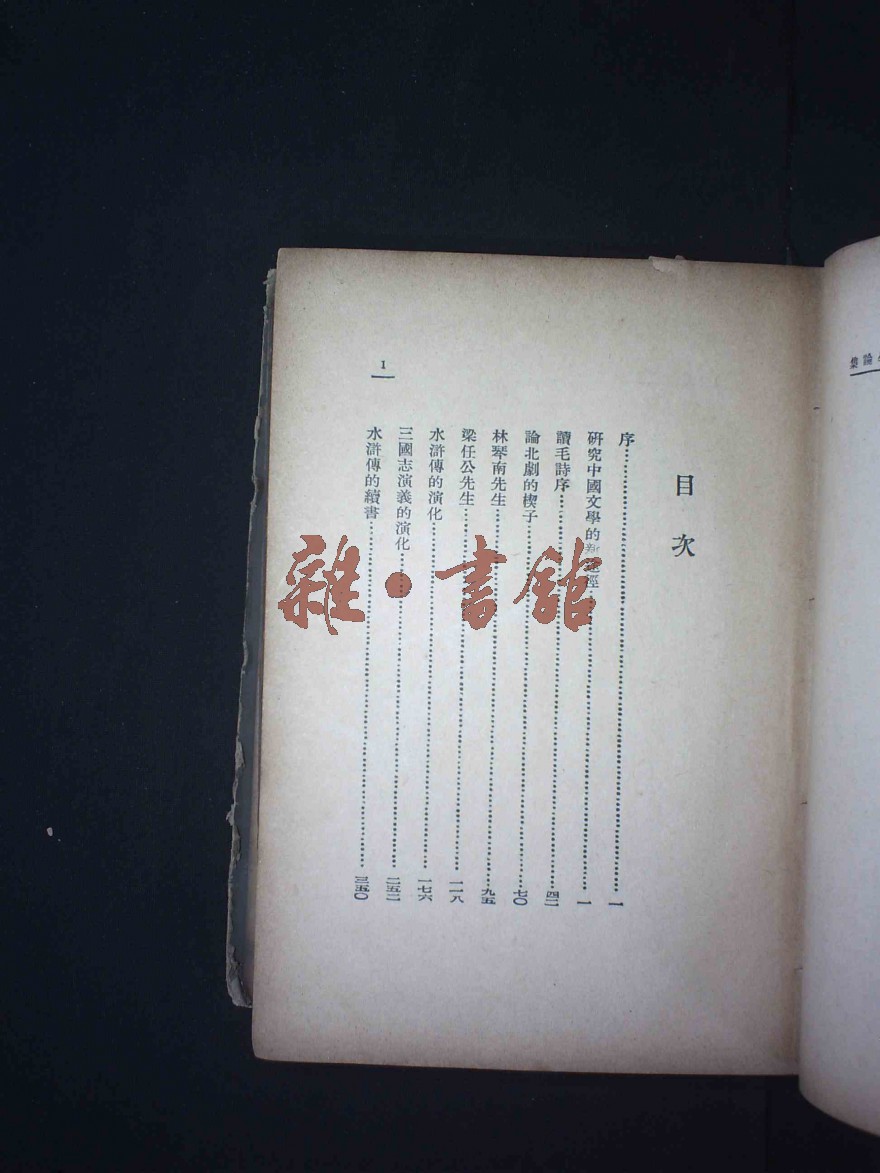 目次
序……一
研究中國文學的新途徑……一
讀毛詩序……四二
論北劇的楔子……七〇
林琴南先生……九五
梁任公先生……一一八
水滸傳的演化……一七六
三國志演義的演化……二五二
水滸傳的續書……三五〇
1
雜·書館
論集